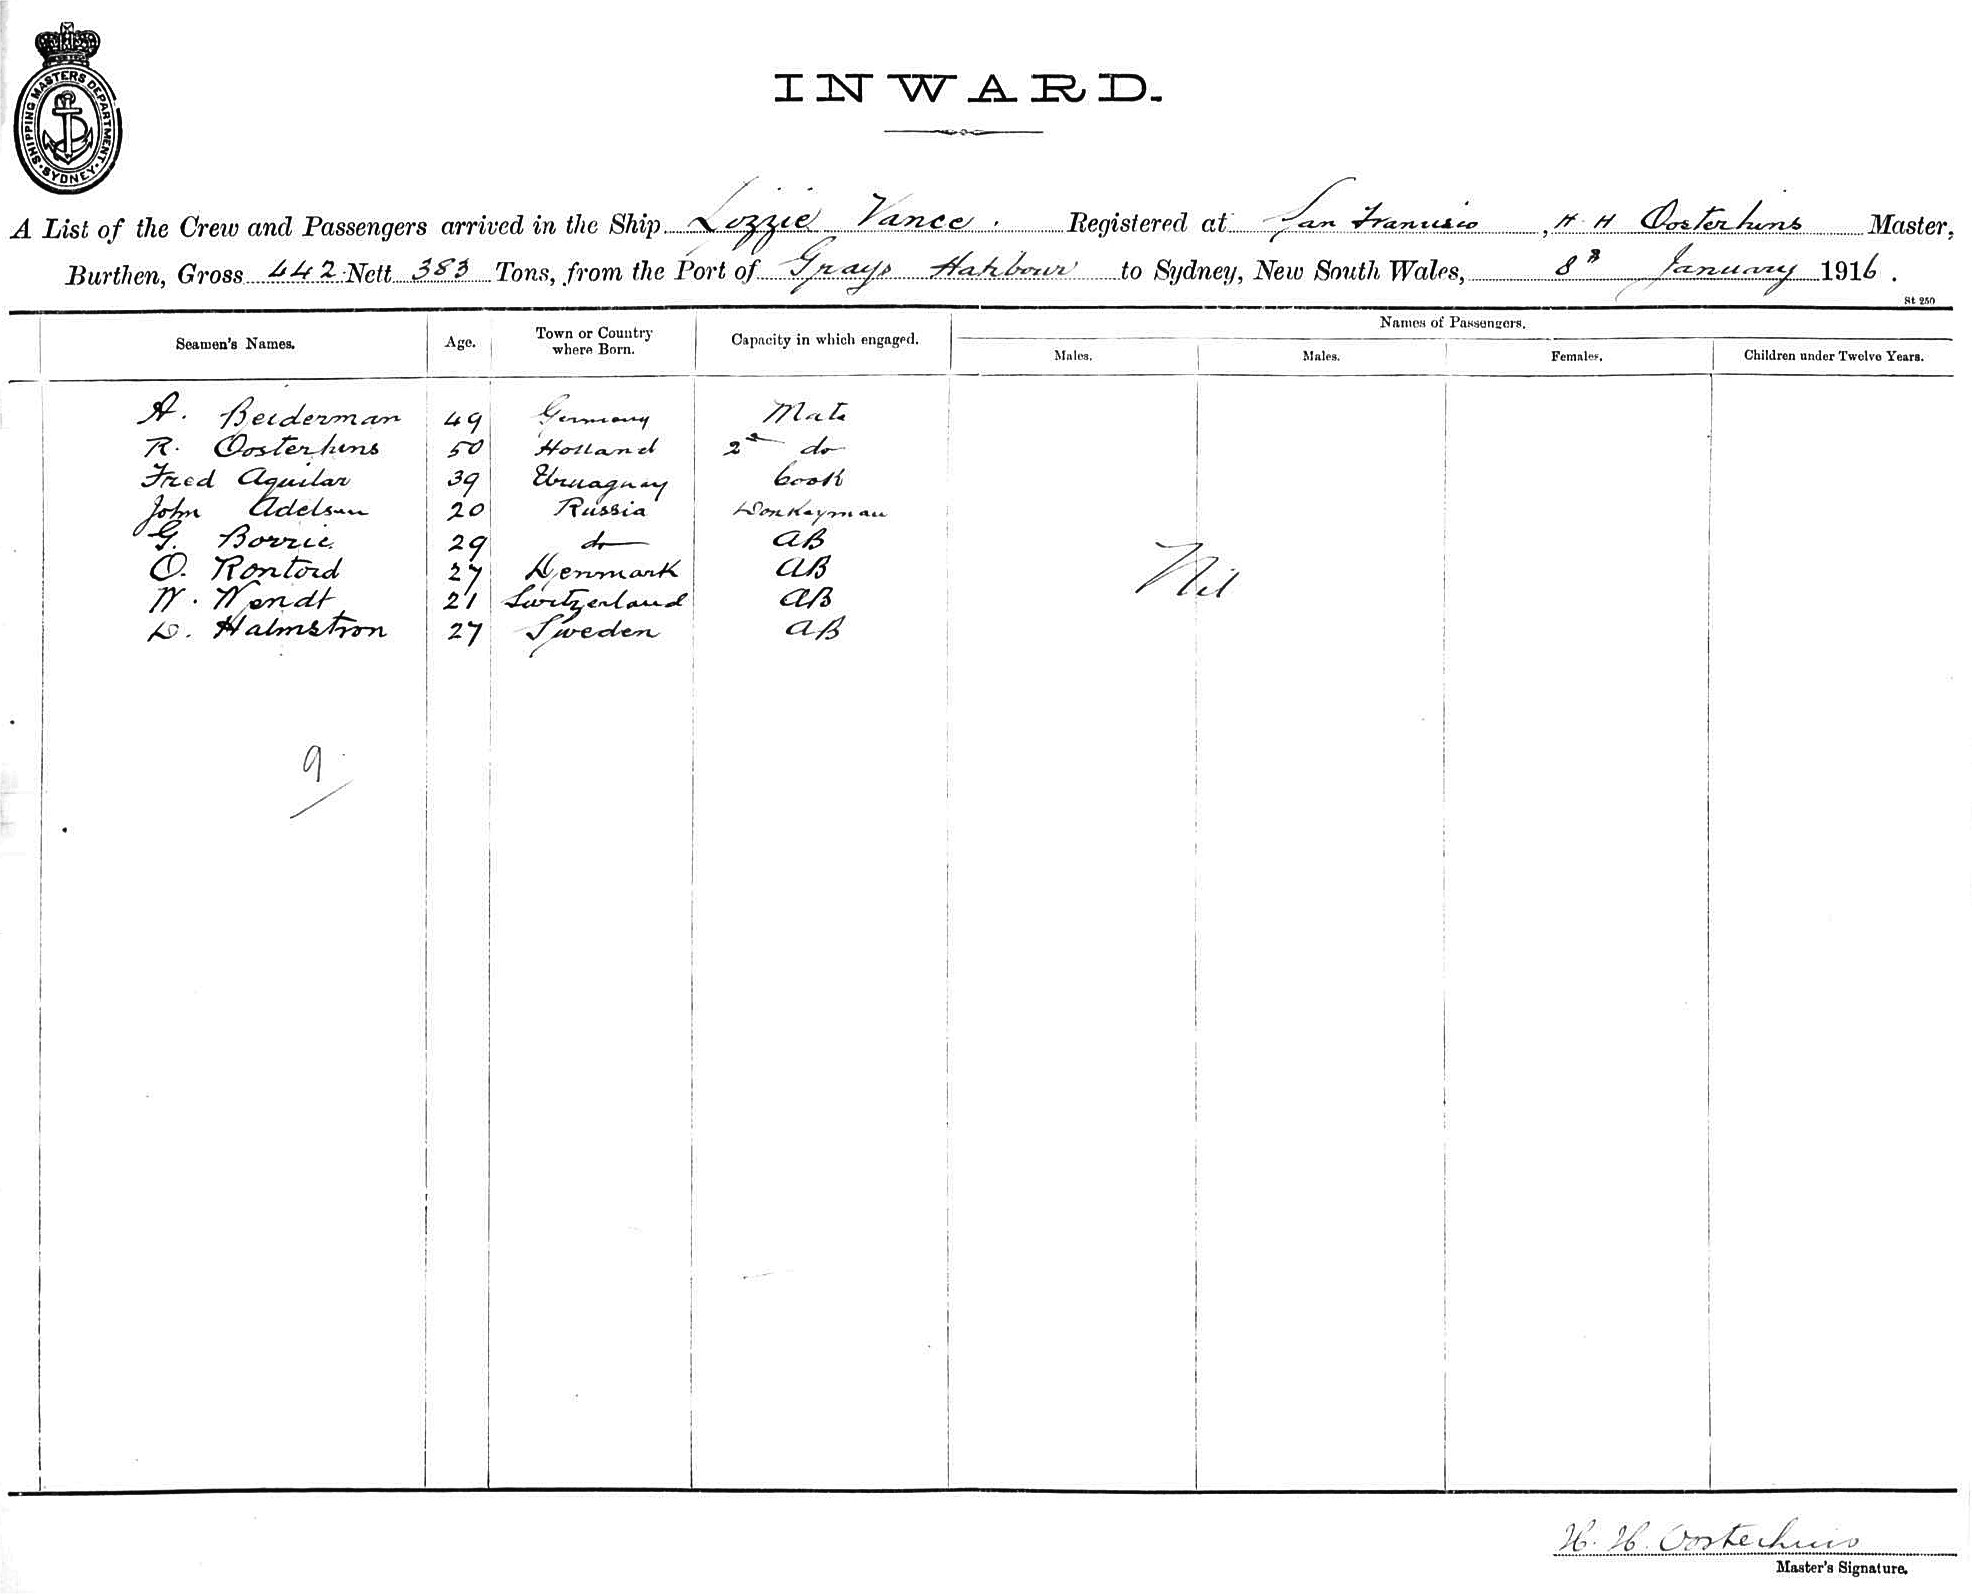 SHIPPING MASTERS DEPARTMENT. SYDNEY.
INWARD.
A List of the Crew and Passengers arrived in the Ship Lizzie Vance. Registered at San Francisco, H H Oosterhuis Master,
Burthen, Gross 442 Nett 383 Tons, from the Port of Grays Harbour to Sydney, New South Wales, 8th January 1916.
St 250
Seamen's Names. Age. Town or Country where Born. Capacity in which engaged. Names of Passengers.
Males. Males. Females. Children under Twelve Years.
A. Beiderman 49 Germany Mate
R. Oosterhuis 50 Holland 2nd do
Fred Aguilar 39 Uruaguay Cook
John Adelsun 20 Russia Donkeyman
G. Borrie 29 do AB
O. Rontord 27 Denmark AB
W. Wendt 21 Switzerland AB
D. Halmstron 27 Sweden AB
Nil
9
H. H. Oosterhuis
Master's Signature.